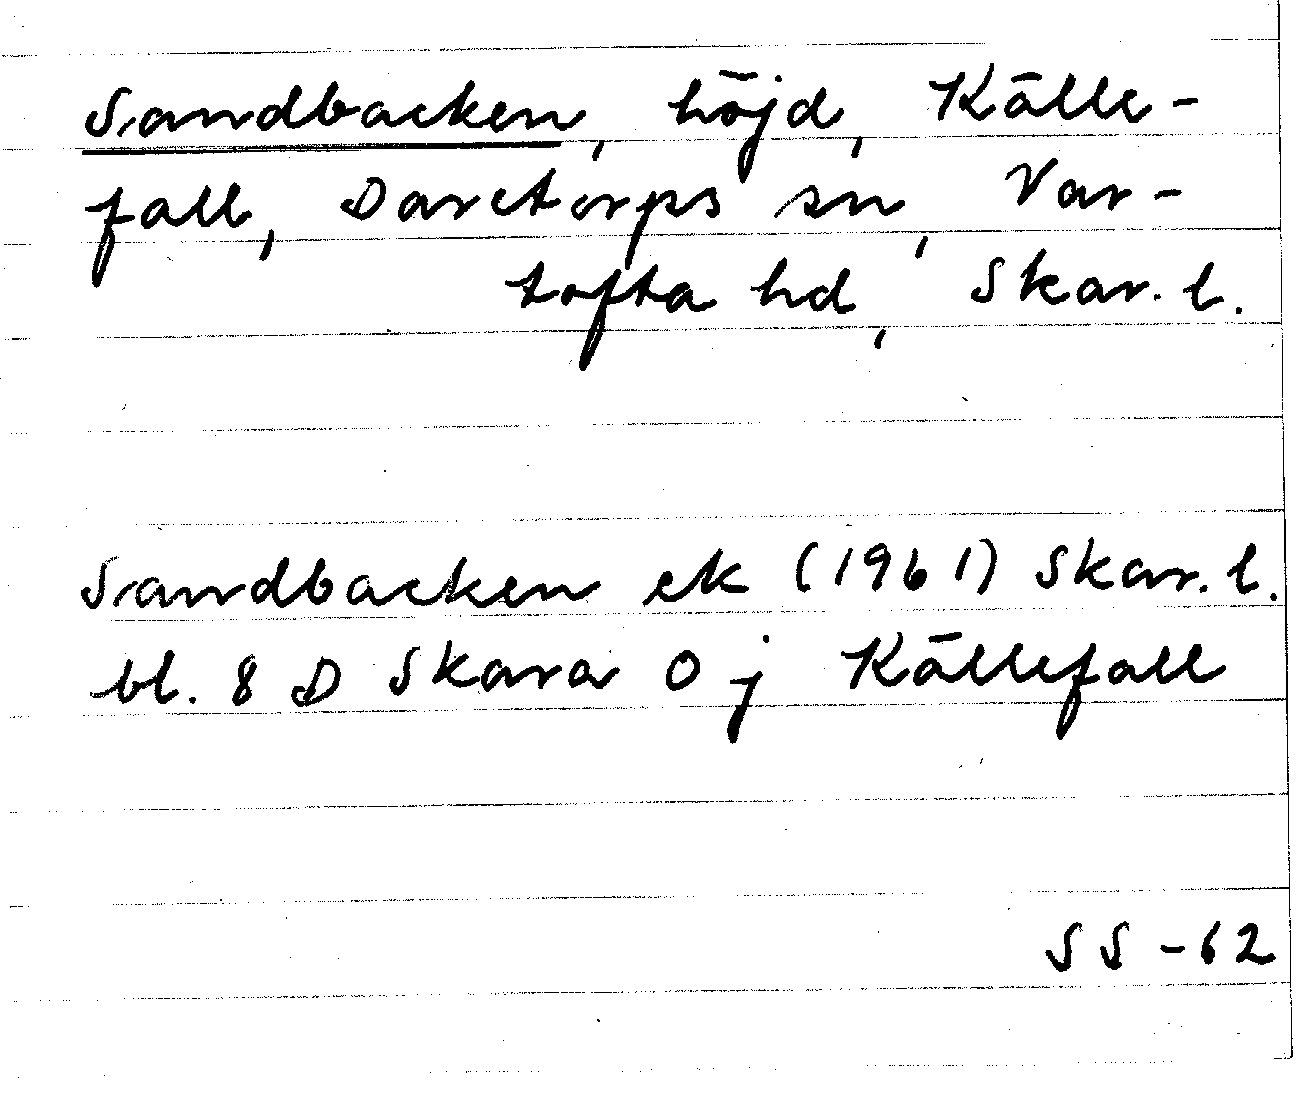 Sandbacken, höjd, Källe-
fall, Daretorps sn, Var-
tofta hd, Skar. l.
Sandbacken ek (1961) Skar. l.
bl. 8 D Skara 0 j Källefall
SS -62